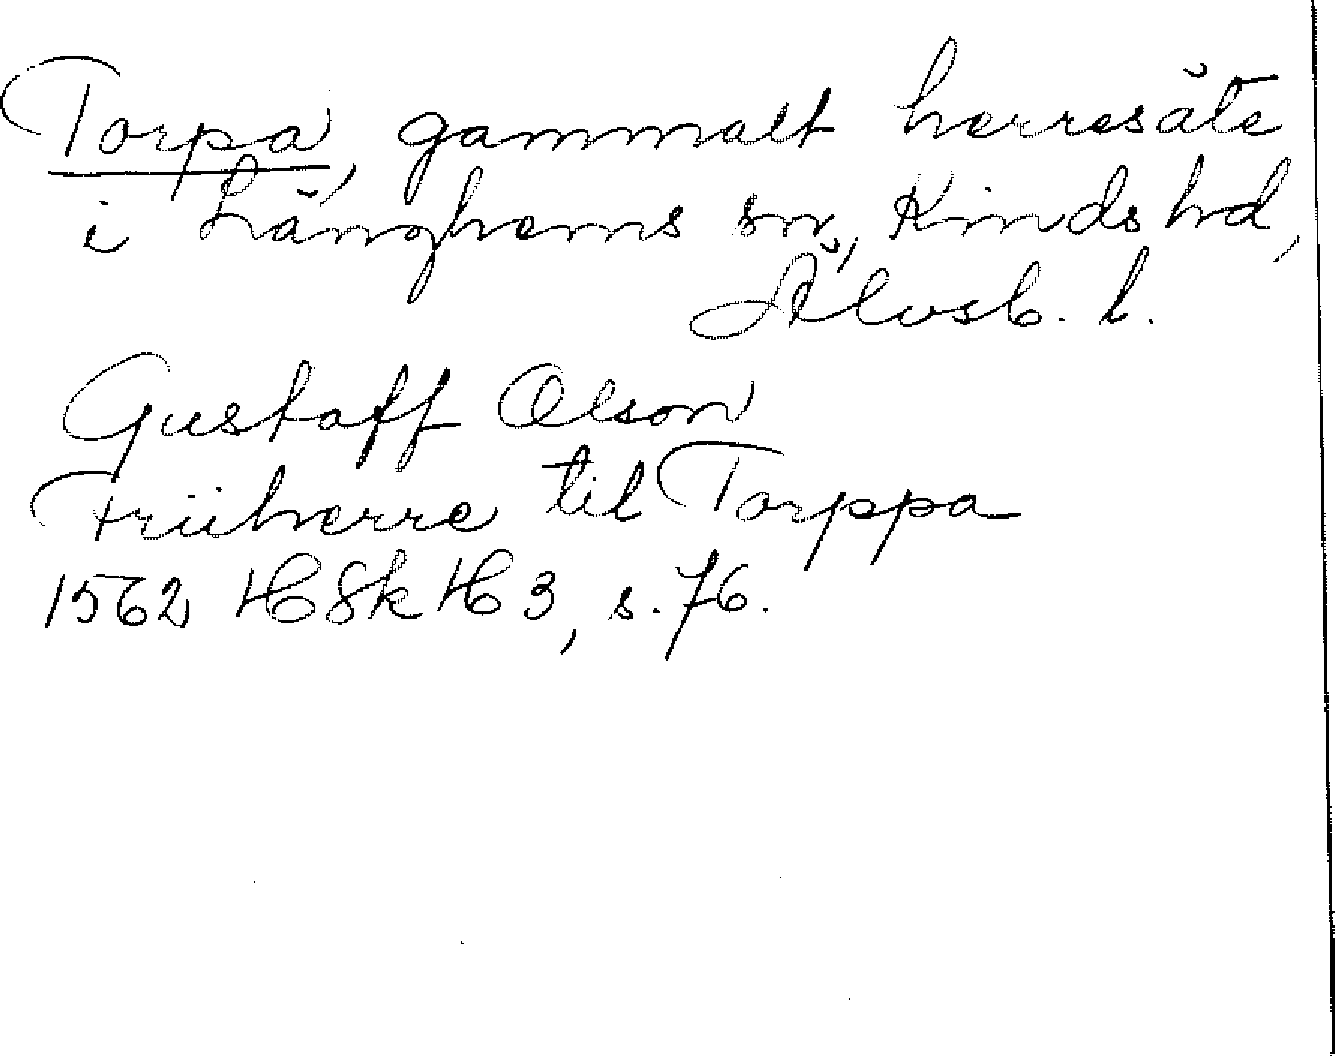 Torpa, gammalt herresäte
i Länghems sn, Kinds hd,
Älvsb. l.
Gustaff Olson
Friiherre til Torppa
1562 HSkH 3, s. 76.